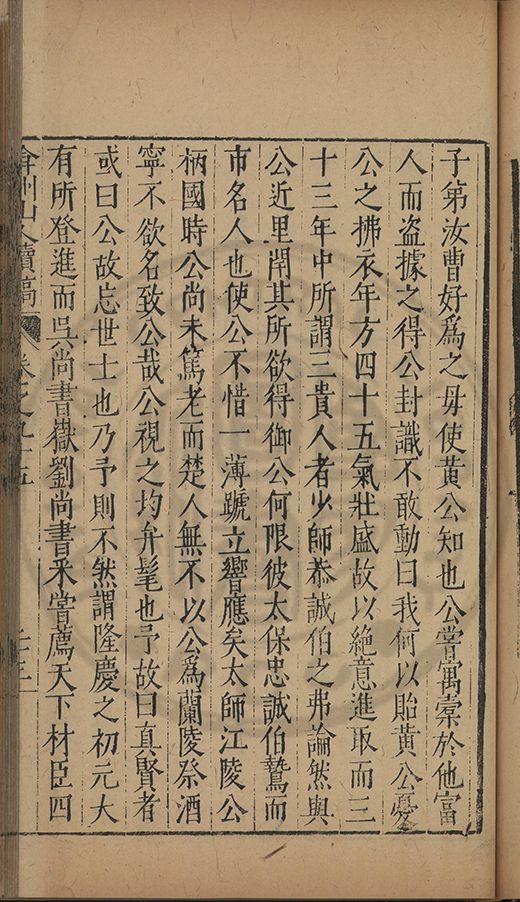 子第汝曹好爲之毋使黃公知也公嘗寓橐於他富
人而盗據之得公封識不敢動曰我何以貽黃公憂
公之拂衣年方四十五氣壯盛故以絶意進取而三
十三年中所謂三貴人者少師恭誠伯之弗論然與
公近里閈其所欲得御公何限彼太保忠誠伯鷙而
市名人也使公不惜一薄蹏立響應矣太師江陵公
柄國時公尚未篤老而楚人無不以公爲蘭陵祭酒
寧不欲名致公哉公視之均弁髦也予故曰真賢者
或曰公故忘世士也乃予則不然謂隆慶之初元大
有所登進而吳尚書嶽劉尚書采嘗薦天下材臣四
弇州山人續稿 卷之九十五